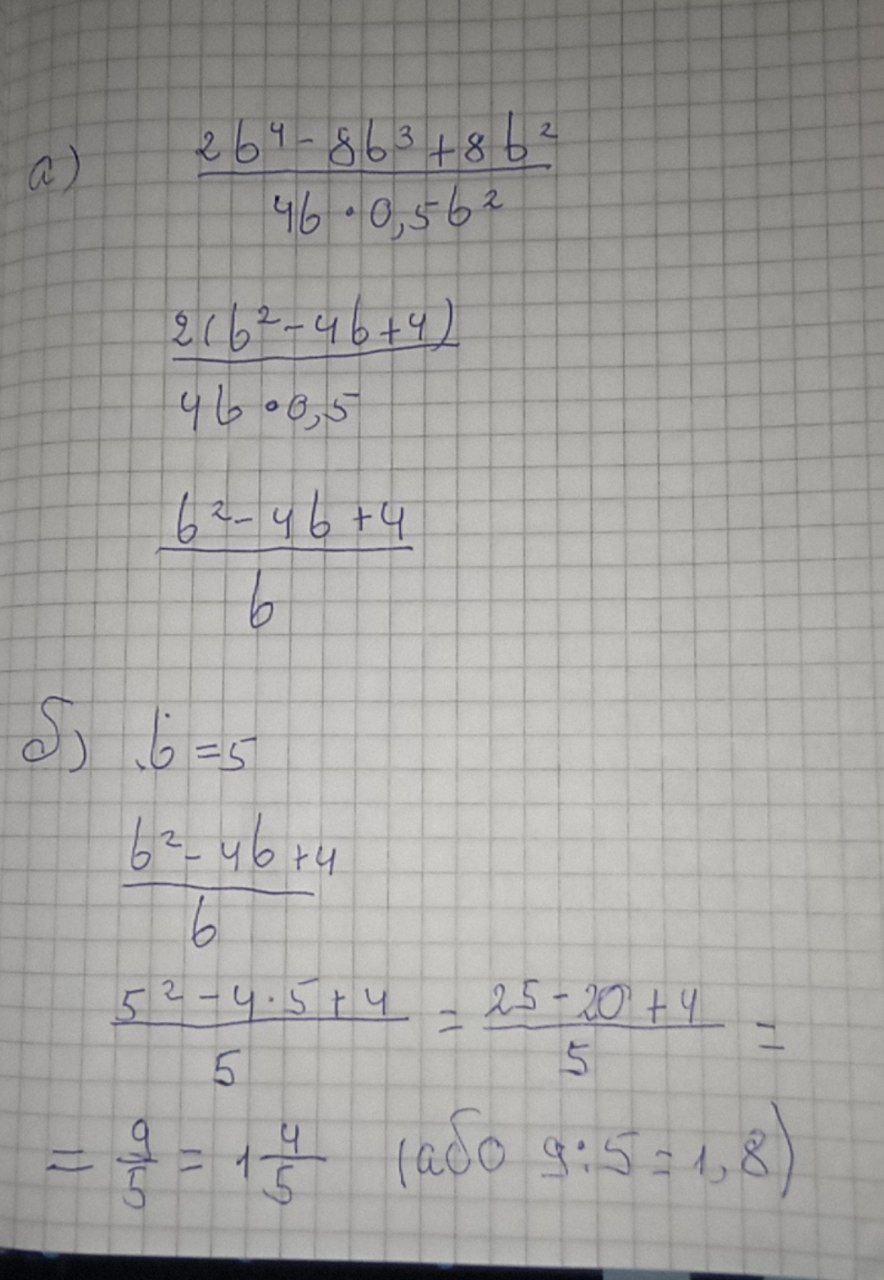 а) 2b⁴ - 8b³ + 8b²
4b · 0,5b²
2(b² - 4b + 4)
4b · 0,5
b² - 4b + 4
b
б) b = 5
b² - 4b + 4
b
5² - 4·5 + 4 = 25 - 20 + 4 =
5 5
= 9/5 = 1 4/5 (або 9:5 = 1,8)